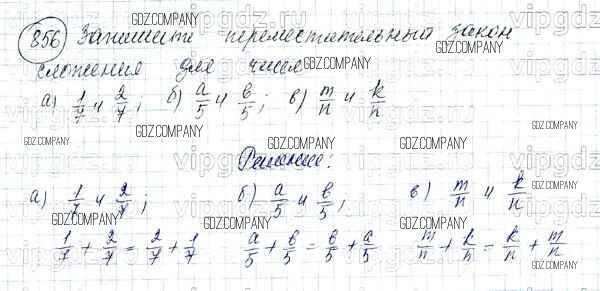 856 Запишите переместительный закон
сложения для чисел
а) 1/7 и 2/7; б) a/5 и b/5; в) m/n и k/n
Решение:
а) 1/7 и 2/7; б) a/5 и b/5; в) m/n и k/n
1/7 + 2/7 = 2/7 + 1/7 a/5 + b/5 = b/5 + a/5 m/n + k/n = k/n + m/n
GDZ.COMPANY
vipgdz